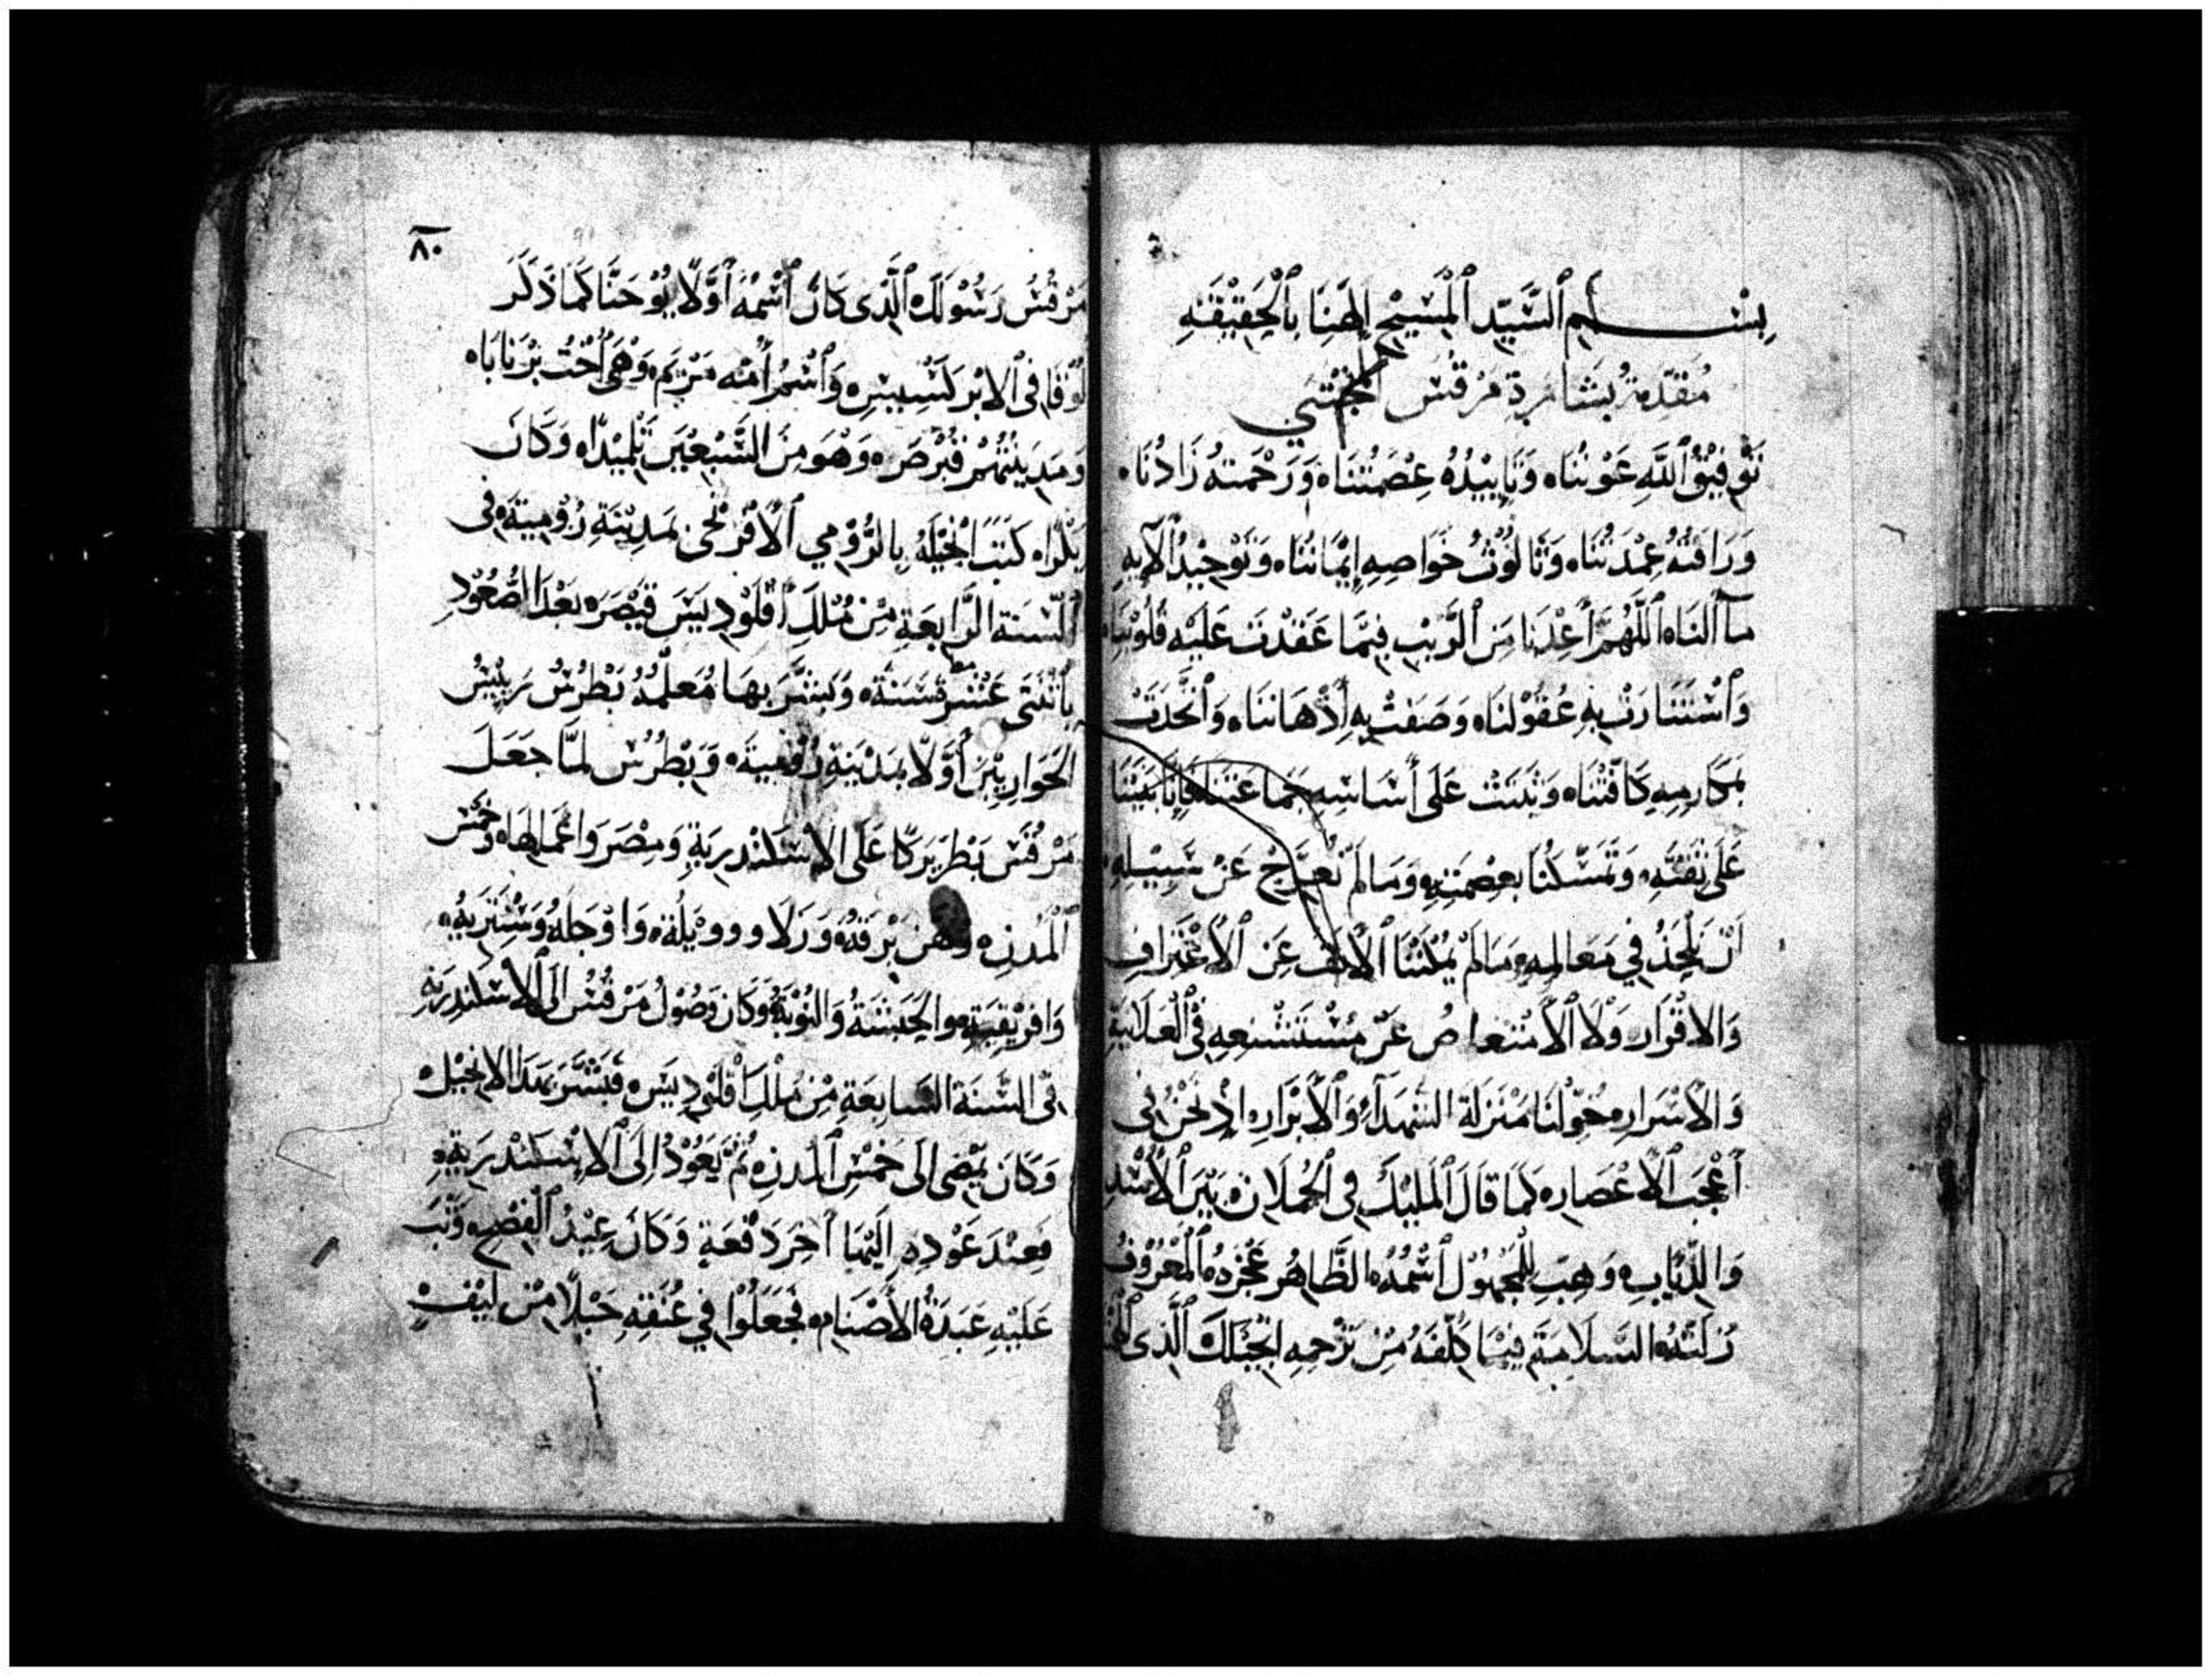 بِسْم ٱلسَّيِّدِ ٱلْمَسِيْحِ إِلٰهِنَا بِٱلْحَقِيْقَهِ
مُقَدِّمَةُ بُشَارَةِ مَرْقُسَ
تَوْفِيْقُ ٱللَّهِ عَوْنُنَا ٥ وَتَايِيْدُهُ عِصْمَتُنَا ٥ وَرَحْمَتهُ زَادُنَا ٥
وَرَافَتُهُ عِمْدَتُنَا ٥ وَثَالُوْثُ خَوَاصِهِ إِيْمَانُنَا ٥ وَتَوْحِيْدُ
ٱللَّهُمَّ أَعِذْنَا مِنَ ٱلرَّيْبِ فِيْمَا عَقَدْتَ عَلَيْهِ قُلُوْبَنَا ٥
وَٱسْتَنَارَتْ بِهِ عُقُوْلنَا ٥ وَصَفَتْ بِهِ أَذْهَاننَا ٥ وَٱتَّحَدَتْ
بِمَكَارِمِهِ كَافَّتُنَا ٥ وَثَبَتَتْ عَلَى أَسَاسِهِ جَمَاعَتنَا
عَلَى ثِقَتِهِ ٥ وَتَمَسَّكْنَا بِعِصْمَتِهِ ٥ وَمَا لَمْ نُعَرِّجْ عَنْ سَبِيْلِهِ ٥
فِي مَعَالِمِهِ ٥ مَا لَمْ يُمْكِنَنَا عَنِ ٱلاعْتِرَافِ
وَالاقْرَار ٥ وَلَا عَنْ فِي ٱلْعَلَانِيَةِ
وَالْأَسْرَارِ ٥ خَوِّلْنَا مَنْزِلَةَ الشُّهَدَآءِ وَٱلْأَبْرَارِ ٥ إِذْ نَحْنُ فِى
أَعْجَبِ ٱلْأَعْصَارِ ٥ كَمَا قَالَ ٱلْمَلِيْكُ فِى ٱلْحُمْلَانِ ٥ بَيْنَ ٱلْأُسْدِ
وَالذِّيَابِ ٥ وَهِبِ لِلْمَجْهُوْلِ ٱسْمُهُ ٥ الظَّاهُرِ عَجْزهُ ٥ ٱلْمَعْرُوْفِ
زَلَّتُهُ ٥ السَّلَامَةَ فِيْمَا كَلَّفْتَهُ مِنْ تَرْجمِهِ انْجِيْلِكَ ٱلَّذِى
٨٠
مَرْقُسُ رَسُوْلكَ ٱلَّذِى كَانَ ٱسْمُهُ أَوَّلًا يُوْحَنَّا كَمَا ذَكَرَ
لُوْقَا فِى ٱلابْرَكْسِيسِ ٥ وَٱسْمُ أُمِّهِ مَرْيَم ٥ وَهْىَ أُخْتُ بَرْنَابَا ٥
وَمَدِيْنَتُهُمْ قُبْرُصَ ٥ وَهْوَ مِنَ السَّبْعِيْنَ تِلْمِيْذًا ٥ وَكَانَ
كَتَبَ انْجِيْلَهُ بِالرُّوْمِي ٱلْأَفْرَنْجِى بَمدِيْنَةِ رُوْمِيَةَ ٥ فِى
ٱلسَّنَة الرَّابِعَةِ مِنْ مُلْكِ أَقْلَوْدِيَسَ قَيْصَرَ ٥ بَعْدَ الصُّعُوْد
بِاثْنَتَى عَشْرَةَ سَنَةً ٥ وَبَشَّرَ بِهَا مُعَلِّمُهُ بُطْرُسُ رَئِيْسُ
الحَوَارِيِّيْنَ أَوَّلًا بِمَدْيَنةِ رُوْمِيَةَ ٥ وَبُطْرُس لمَّا جَعَلَ
مَرْقُسَ بَطْرَيَركًا عَلَى الاسْكَنْدرِيَةِ وَمِصْرَ وَاعْمَالِهَا ٥ وَخَمْسَ
ٱلْمُدُنِ ٥ وَهُنَّ بَرْقَةُ ٥
وَافْرِيْقِيَةِ ٥ والحَبَشَةُ وَالنُوْبَةُ ٥ وَكَانَ وَصُوْلُ مَرْقُسَ إلَى ٱلاسْكَنْدِرَيةِ
فِى السَّنَة السَّابِعَةِ مِنْ مُلْكِ أَقْلَوْدِيَس ٥ فَبَشَّرَ بهَذَا الانْجِيْلِ
وَكَانَ يَمْضِى الَى خَمْسِ ٱلْمُدنِ ٥ ثُمَّ يَعُوْدُ إِلَى ٱلاسْكَنْدَرِيَةِ ٥
فَعِنْدَ عَوْدِهِ إِلَيْهَا آخِرَ دَفْعَةٍ وَكَانَ عِيْدُ ٱلْفِصْحِ ٥ وَثَبَ
عَلَيْهِ عَبَدَةُ الأَصْنَامِ ٥ فَجَعَلُوْا فِي عُنُقِهِ حَبْلًا مِنْ لِيْفٍ